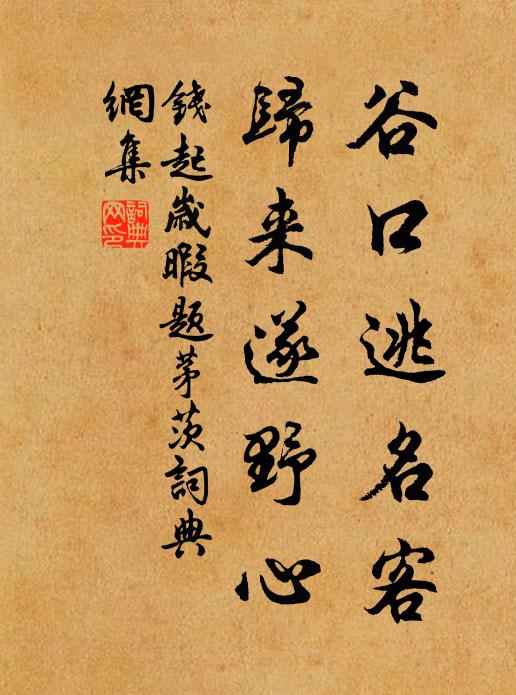 谷口逃名客
歸来遂野心
錢起歲暇題茅茨詞典
網集
詞典
网印